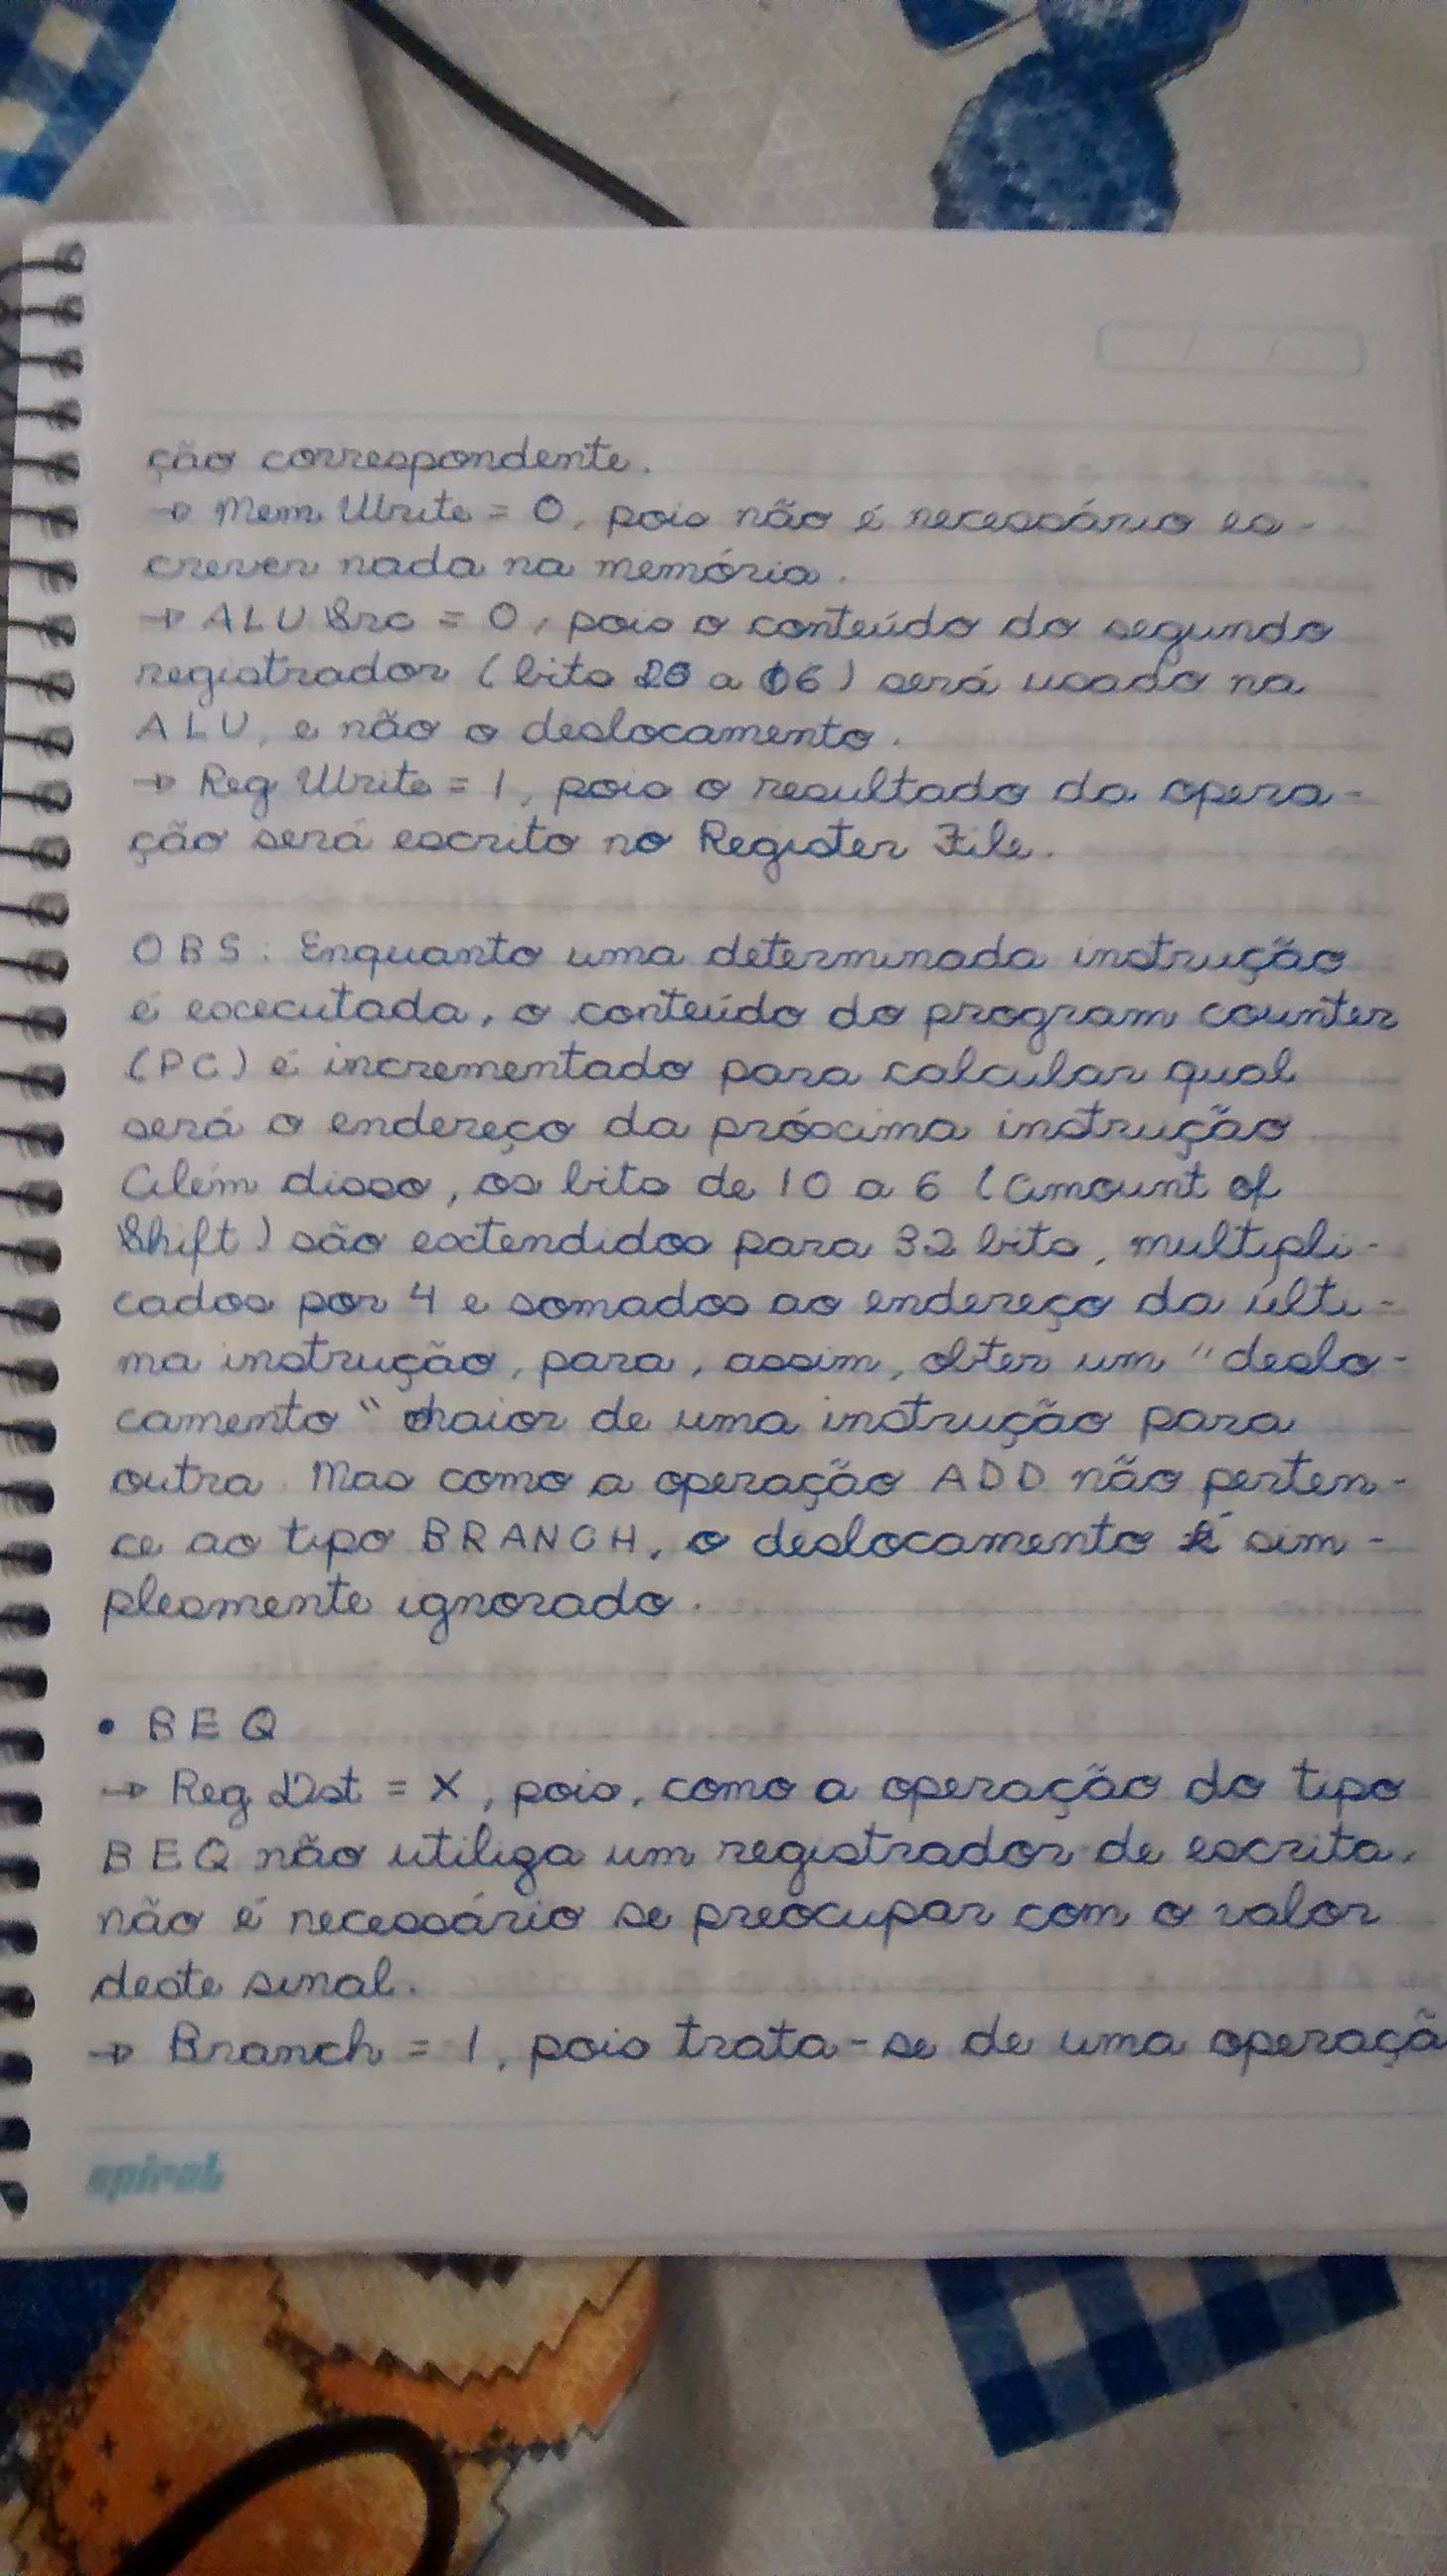 ção correspondente.
→ Mem Write = 0, pois não é necessário es-
crever nada na memória.
→ ALU Src = 0, pois o conteúdo do segundo
registrador (bits 20 a 16) será usado na
ALU, e não o deslocamento.
→ Reg Write = 1, pois o resultado da opera-
ção será escrito no Register File.
OBS: Enquanto uma determinada instrução
é executada, o conteúdo do program counter
(PC) é incrementado para calcular qual
será o endereço da próxima instrução
Além disso, os bits de 10 a 6 (Amount of
Shift) são extendidos para 32 bits, multipli-
cados por 4 e somados ao endereço da últi-
ma instrução, para, assim, obter um "deslo-
camento" maior de uma instrução para
outra. Mas como a operação ADD não perten-
ce ao tipo BRANCH, o deslocamento é sim-
plesmente ignorado.
• BEQ
→ Reg Dst = X, pois, como a operação do tipo
BEQ não utiliza um registrador de escrita,
não é necessário se preocupar com o valor
deste sinal.
→ Branch = 1, pois trata-se de uma operaçã
spiral